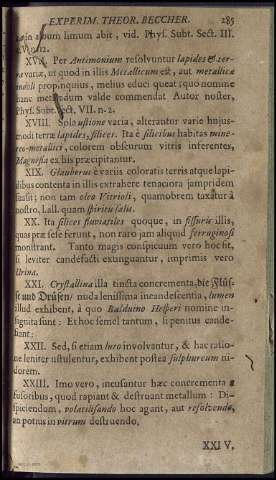 EXPERIM. THEOR. BECCHER. 285
in album limum abit, vid. Phys. Subt. Sect. III.
XVII. Per Antimonium resolvuntur lapides & ter-
ut quod in illis Metallicum est, aut metallicæ
indoli propinquius, melius educi queat; quo nomine
hunc modum valde commendat Autor noster,
Phys. Subt. Sect. VII. n. 2.
XVIII. Sola ustione varia, alterantur varie hujus-
modi terræ lapides, silices. Ita è silicibus habitas mine-
reo-metallici, colorem obscurum vitris inferentes,
Magnesia ex his præcipitantur.
XIX. Glauberus è variis coloratis terris atque lapi-
dibus contenta in illis extrahere tenaciora jampridem
suasit; non tam oleo Vitrioli, quamobrem taxatur à
nostro, Lall. quam spiritu salis.
XX. Ita silices fluviatiles quoque, in fissuris illis,
quas præ sese ferunt, non raro jam aliquid ferruginosi
monstrant. Tanto magis conspicuum vero hoc fit,
si leviter candefacti exunguantur, imprimis vero
Urina.
XXI. Crystallina illa tincta concrementa, die Flüs-
se und Drusen/ nuda lenissima incandescentia, lumen
illud exhibent, à quo Balduino Hesperi nomine in-
signita sunt: Et hoc semel tantum, si penitus cande-
fiant;
XXII. Sed, si etiam luto involvantur, & hac ratio-
ne leniter ustulentur, exhibent postea sulphureum ni-
dorem.
XXIII. Imo vero, incusantur hæc concrementa à
fusoribus, quod rapiant & destruant metallum: Di-
spiciendum, volatilisando hoc agant, aut resolvendo,
an potus in vitrum destruendo.
XXIV.